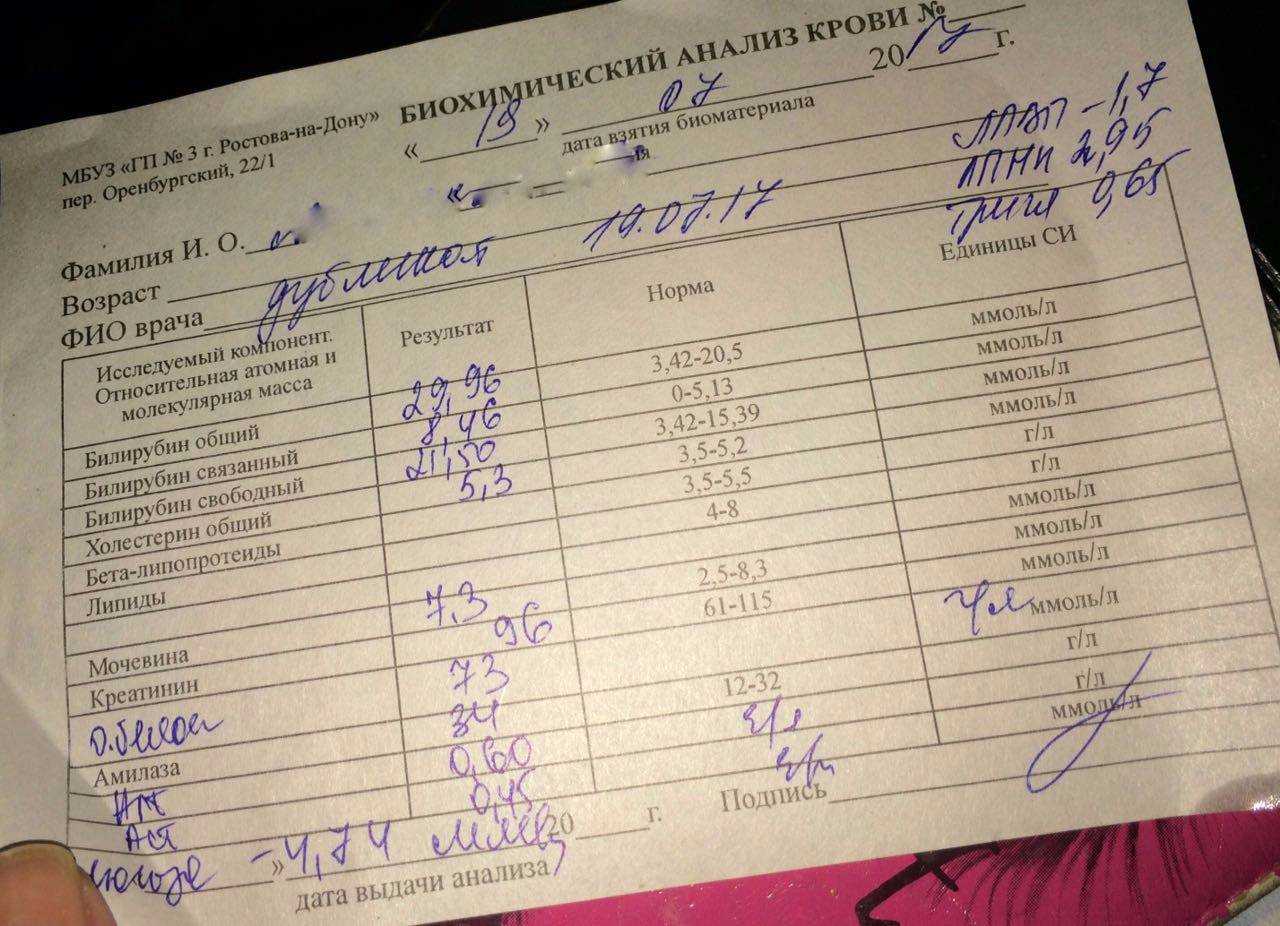 БИОХИМИЧЕСКИЙ АНАЛИЗ КРОВИ №
МБУЗ «ГП № 3 г. Ростова-на-Дону»
пер. Оренбургский, 22/1
« 19 » 07 2017 г.
дата взятия биоматериала
ЛПВП - 1,7
ЛПНП 2,95
тригл 0,65
Фамилия И. О.
Возраст
ФИО врача
дубликат 19.07.17
Исследуемый компонент. Результат Норма Единицы СИ
Относительная атомная и
молекулярная масса
Билирубин общий 29,96 3,42-20,5 ммоль/л
Билирубин связанный 8,46 0-5,13 ммоль/л
Билирубин свободный 21,50 3,42-15,39 ммоль/л
Холестерин общий 5,3 3,5-5,2 ммоль/л
Бета-липопротеиды 3,5-5,5 г/л
Липиды 4-8 г/л
ммоль/л
Мочевина 7,3 2,5-8,3 ммоль/л
Креатинин 96 61-115 ммоль/л
О.белок 73 г/л ммоль/л
Амилаза 34 12-32 г/л
Алт 0,60 г/л
Аст 0,45 ммоль/л
глюкоза » - 4,74 20 г.
дата выдачи анализа
Подпись